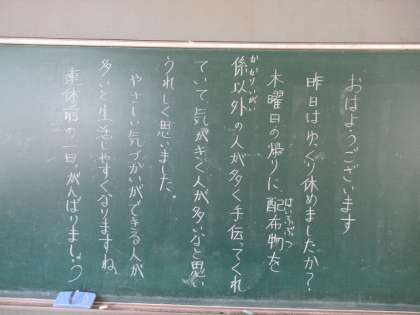 おはようございます
昨日はゆっくり休めましたか？
木曜日の帰りに、配布物を
はいふぶつ
係以外の人が多く手伝ってくれ
かかりいがい
ていて、気がきく人が多いなと思い
うれしく思いました。
やさしい気づかいができる人が
多いと生活しやすくなりますね。
連休前の一日、がんばりましょう